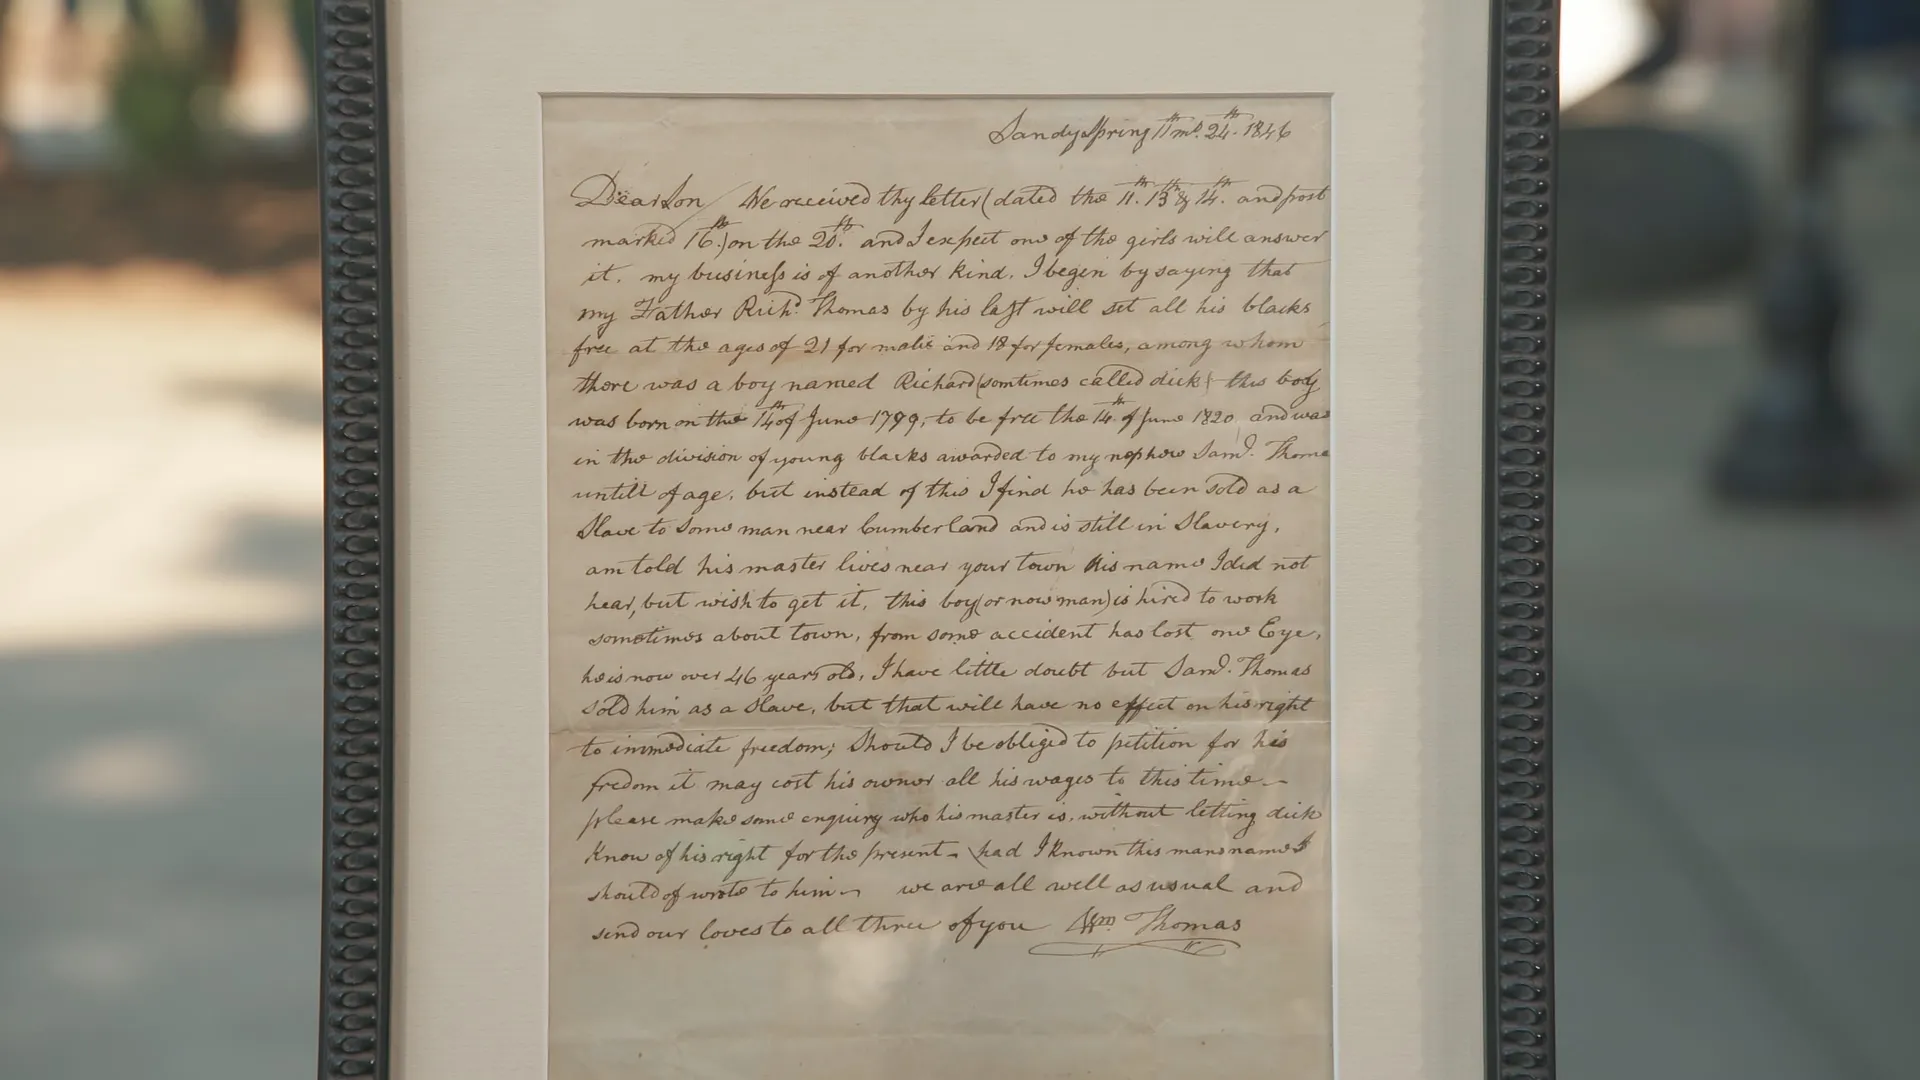 Sandy Spring 11th mo. 24th. 1846
Dear Son We received thy letter (dated the 11th. 13th & 14th. and post
marked 16th.) on the 20th. and I expect one of the girls will answer
it. my business is of another kind. I begin by saying that
my Father Richd. Thomas by his last will set all his blacks
free at the ages of 21 for male and 18 for females, among whom
there was a boy named Richard (somtimes called dick) this body
was born on the 14th of June 1799, to be free the 14th. of June 1820 and was
in the division of young blacks awarded to my nephew Saml. Thomas
untill of age, but instead of this I find he has been sold as a
Slave to some man near Cumberland and is still in Slavery,
am told his master lives near your town His name I did not
hear, but wish to get it, this boy (or now man) is hired to work
sometimes about town, from some accident has lost one Eye,
he is now over 46 years old, I have little doubt but Saml. Thomas
sold him as a Slave, but that will have no effect on his right
to immediate freedom; Should I be obliged to petition for his
fredom it may cost his owner all his wages to this time —
please make some enquiry who his master is, without letting dick
Know of his right for the present — had I known this mans name I
should of wrote to him — we are all well as usual and
send our loves to all three of you Wm Thomas